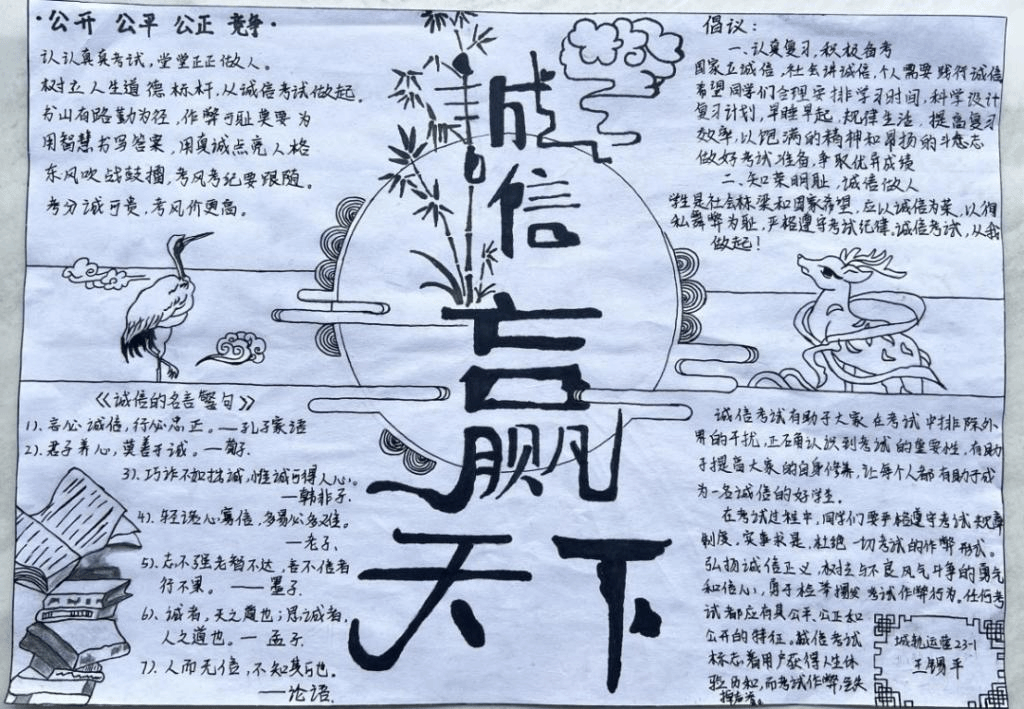 ·公开 公平 公正 竞争·
认认真真考试，堂堂正正做人。
树立人生道德标杆，从诚信考试做起。
书山有路勤为径，作弊可耻莫要为
用智慧书写答案，用真诚点亮人格
东风吹战鼓擂，考风考纪要跟随。
考分诚可贵，考风价更高。
诚信赢天下
倡议：
一、认真复习，积极备考
国家立诚信，社会讲诚信，个人需要践行诚信
希望同学们合理安排学习时间，科学设计
复习计划，早睡早起，规律生活，提高复习
效率，以饱满的精神和昂扬的斗志
做好考试准备，争取优异成绩
二、知荣明耻，诚信做人
学生是社会栋梁和国家希望，应以诚信为荣，以徇
私舞弊为耻，严格遵守考试纪律，诚信考试，从我
做起！
《诚信的名言警句》
1）．言必诚信，行必忠正。—孔子家语
2）．君子养心，莫善于诚。—荀子．
3）．巧诈不如拙诚，惟诚可得人心。
—韩非子．
4）．轻诺必寡信，多易必多难。
—老子．
5）．志不强者智不达，言不信者
行不果。——墨子．
6）．诚者，天之道也；思诚者，
人之道也。—孟子．
7）．人而无信，不知其可也．
——论语．
诚信考试有助于大家在考试中排除外
界的干扰，正确认识到考试的重要性，有助
于提高大家的自身修养，让每个人都有助于成
为一名诚信的好学生。
在考试过程中，同学们要严格遵守考试规章
制度，实事求是，杜绝一切考试的作弊形式。
弘扬诚信正义，树立与不良风气斗争的勇气
和信心，勇于检举揭发考试作弊行为。任何考
试都应有具公平、公正和
公开的特征。诚信考试
标志着用户获得人生体
验为和，而考试作弊，丢失
城轨运营23-1
王锡平